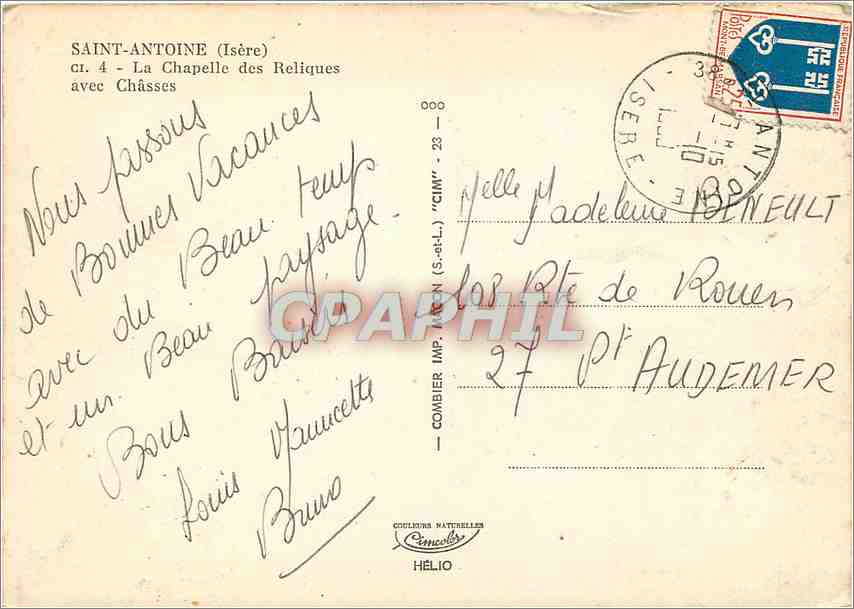 SAINT-ANTOINE (Isère)
CI. 4 - La Chapelle des Reliques
avec Châsses
Nous passons
de Bonnes Vacances
avec du Beau temps
et un Beau paysage.
Bons Baisers
Louis Mauricette
Bruno
COMBIER IMP. MACON (S.-et-L.) "CIM" - 23 -
COULEURS NATURELLES
Cimcolor
HÉLIO
RÉPUBLIQUE FRANÇAISE
Postes
MONT-DE-MARSAN
0,25
38 ANTOINE
ISERE
Melle Madeleine BENEULT
108 Rte de Rouen
27 Pt AUDEMER
CPAPHIL